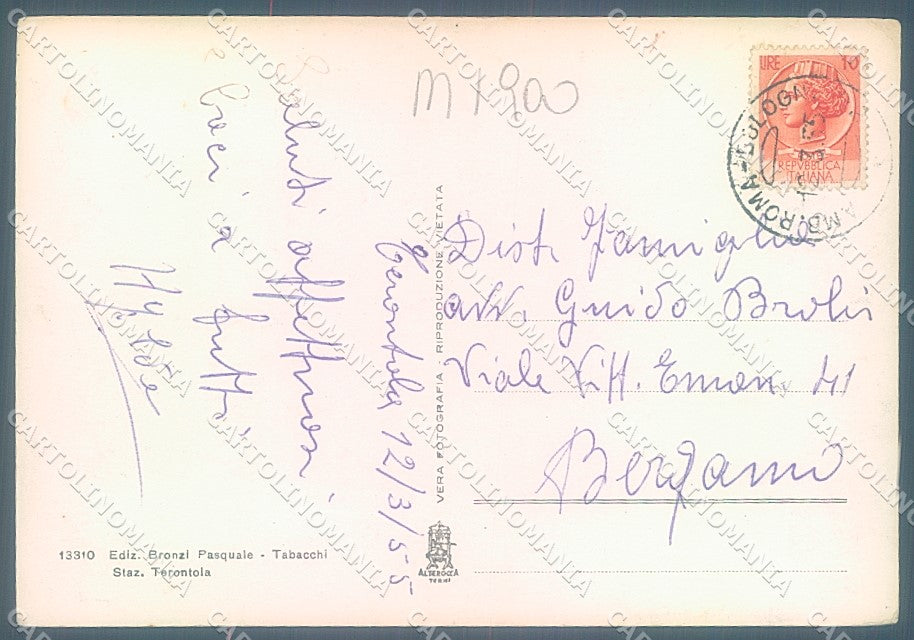 M X 900
LIRE 10
REPVBBLICA
ITALIANA
AMB. ROMA-BOLOGNA
Terontola 12/3/55
Saluti affettuosi
e baci a tutti
Dist. Famiglia
avv. Guido Broli
Viale Vitt. Eman. 41
Bergamo
VERA FOTOGRAFIA - RIPRODUZIONE VIETATA
ALTEROCCA
TERNI
13310 Ediz. Bronzi Pasquale - Tabacchi
Staz. Terontola
CARTOLINOMANIA